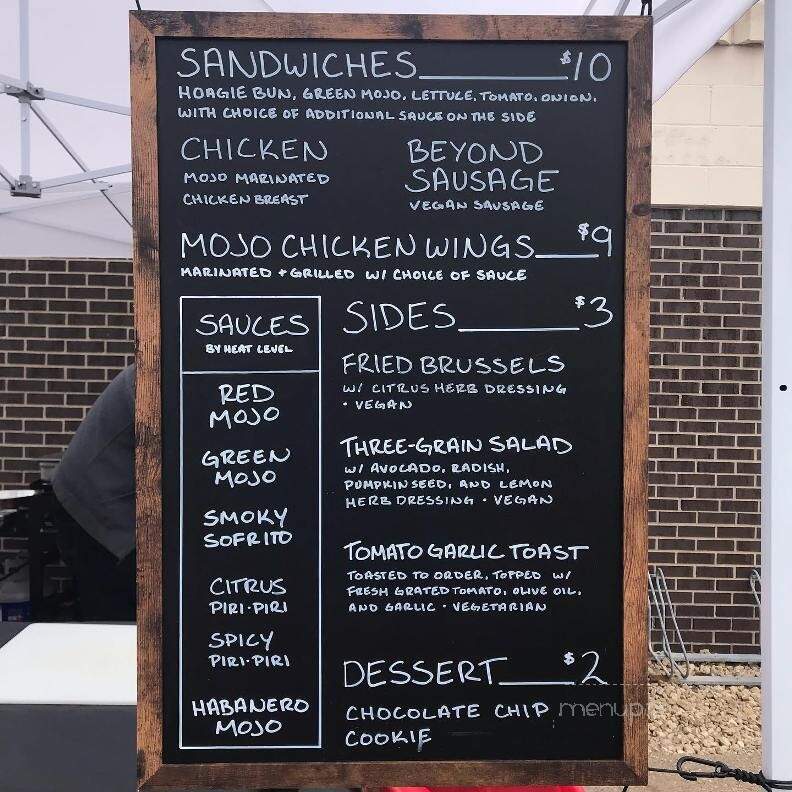 SANDWICHES $10
HOAGIE BUN, GREEN MOJO, LETTUCE, TOMATO, ONION,
WITH CHOICE OF ADDITIONAL SAUCE ON THE SIDE
CHICKEN
MOJO MARINATED
CHICKEN BREAST
BEYOND
SAUSAGE
VEGAN SAUSAGE
MOJO CHICKEN WINGS $9
MARINATED + GRILLED W/ CHOICE OF SAUCE
SAUCES
BY HEAT LEVEL
RED
MOJO
GREEN
MOJO
SMOKY
SOFRITO
CITRUS
PIRI-PIRI
SPICY
PIRI-PIRI
HABANERO
MOJO
SIDES $3
FRIED BRUSSELS
W/ CITRUS HERB DRESSING
• VEGAN
THREE-GRAIN SALAD
W/ AVOCADO, RADISH,
PUMPKIN SEED, AND LEMON
HERB DRESSING • VEGAN
TOMATO GARLIC TOAST
TOASTED TO ORDER, TOPPED W/
FRESH GRATED TOMATO, OLIVE OIL,
AND GARLIC • VEGETARIAN
DESSERT $2
CHOCOLATE CHIP
COOKIE